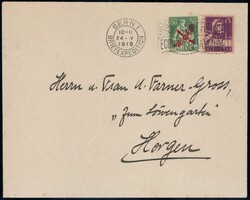 BERN 1
10-11
24-V
1919
BRIEFEXPEDITION
Herrn u. Frau A. Farner-Gross,
"Zum Löwengarten"
Horgen